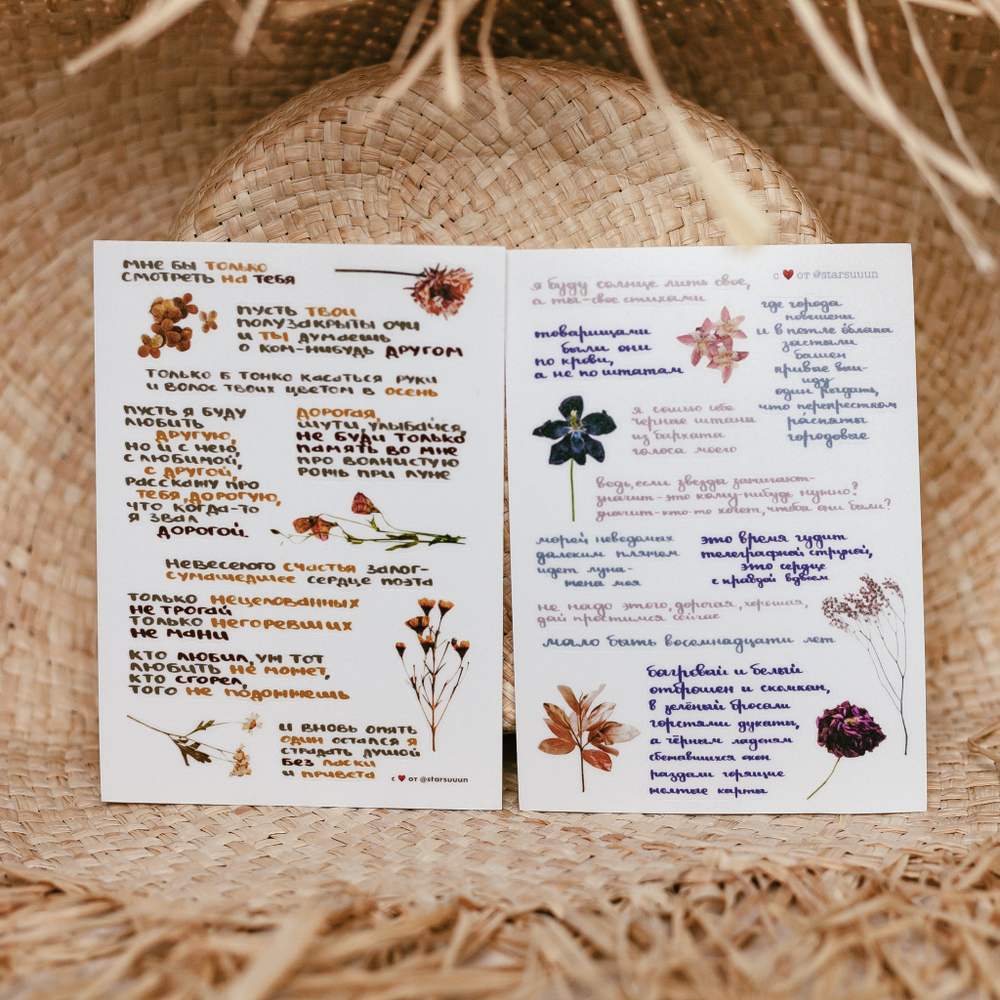 мне бы только
смотреть на тебя
пусть твои
полузакрыты очи
и ты думаешь
о ком-нибудь другом
только б тонко касаться руки
и волос твоих цветом в осень
пусть я буду
любить
другую,
но и с нею,
с любимой,
с другой
расскажу про
тебя, дорогую,
что когда-то
я звал
дорогой.
дорогая,
шути, улыбайся,
не буди только
память во мне
про волнистую
рожь при луне
невеселого счастья залог-
сумасшедшее сердце поэта
только нецелованных
не трогай
только негоревших
не мани
кто любил, уж тот
любить не может,
кто сгорел,
того не подожжешь
и вновь опять
один остался я
страдать душой
без ласки
и привета
с ❤ от @starsuuun
я буду солнце лить свое,
а ты-свое стихами
с ❤ от @starsuuun
товарищами
были они
по крови,
а не по штатам
где города
повешены
и в петле облака
застыли
башен
кривые выи-
иду
один рыдать,
что перекрестком
распяты
городовые
я сошью себе
черные штаны
из бархата
голоса моего
ведь, если звезды зажигают-
значит-это кому-нибудь нужно?
значит-кто-то хочет, чтобы они были?
морей неведомых
далеким пляжем
идет луна-
жена моя
это время гудит
телеграфной струной,
это сердце
с правдой вдвоем
не надо этого, дорогая, хорошая,
дай простимся сейчас
мало быть восемнадцати лет
багровый и белый
отброшен и скомкан,
в зелёный бросали
горстями дукаты,
а чёрным ладоням
сбежавшихся окон
раздали горящие
желтые карты